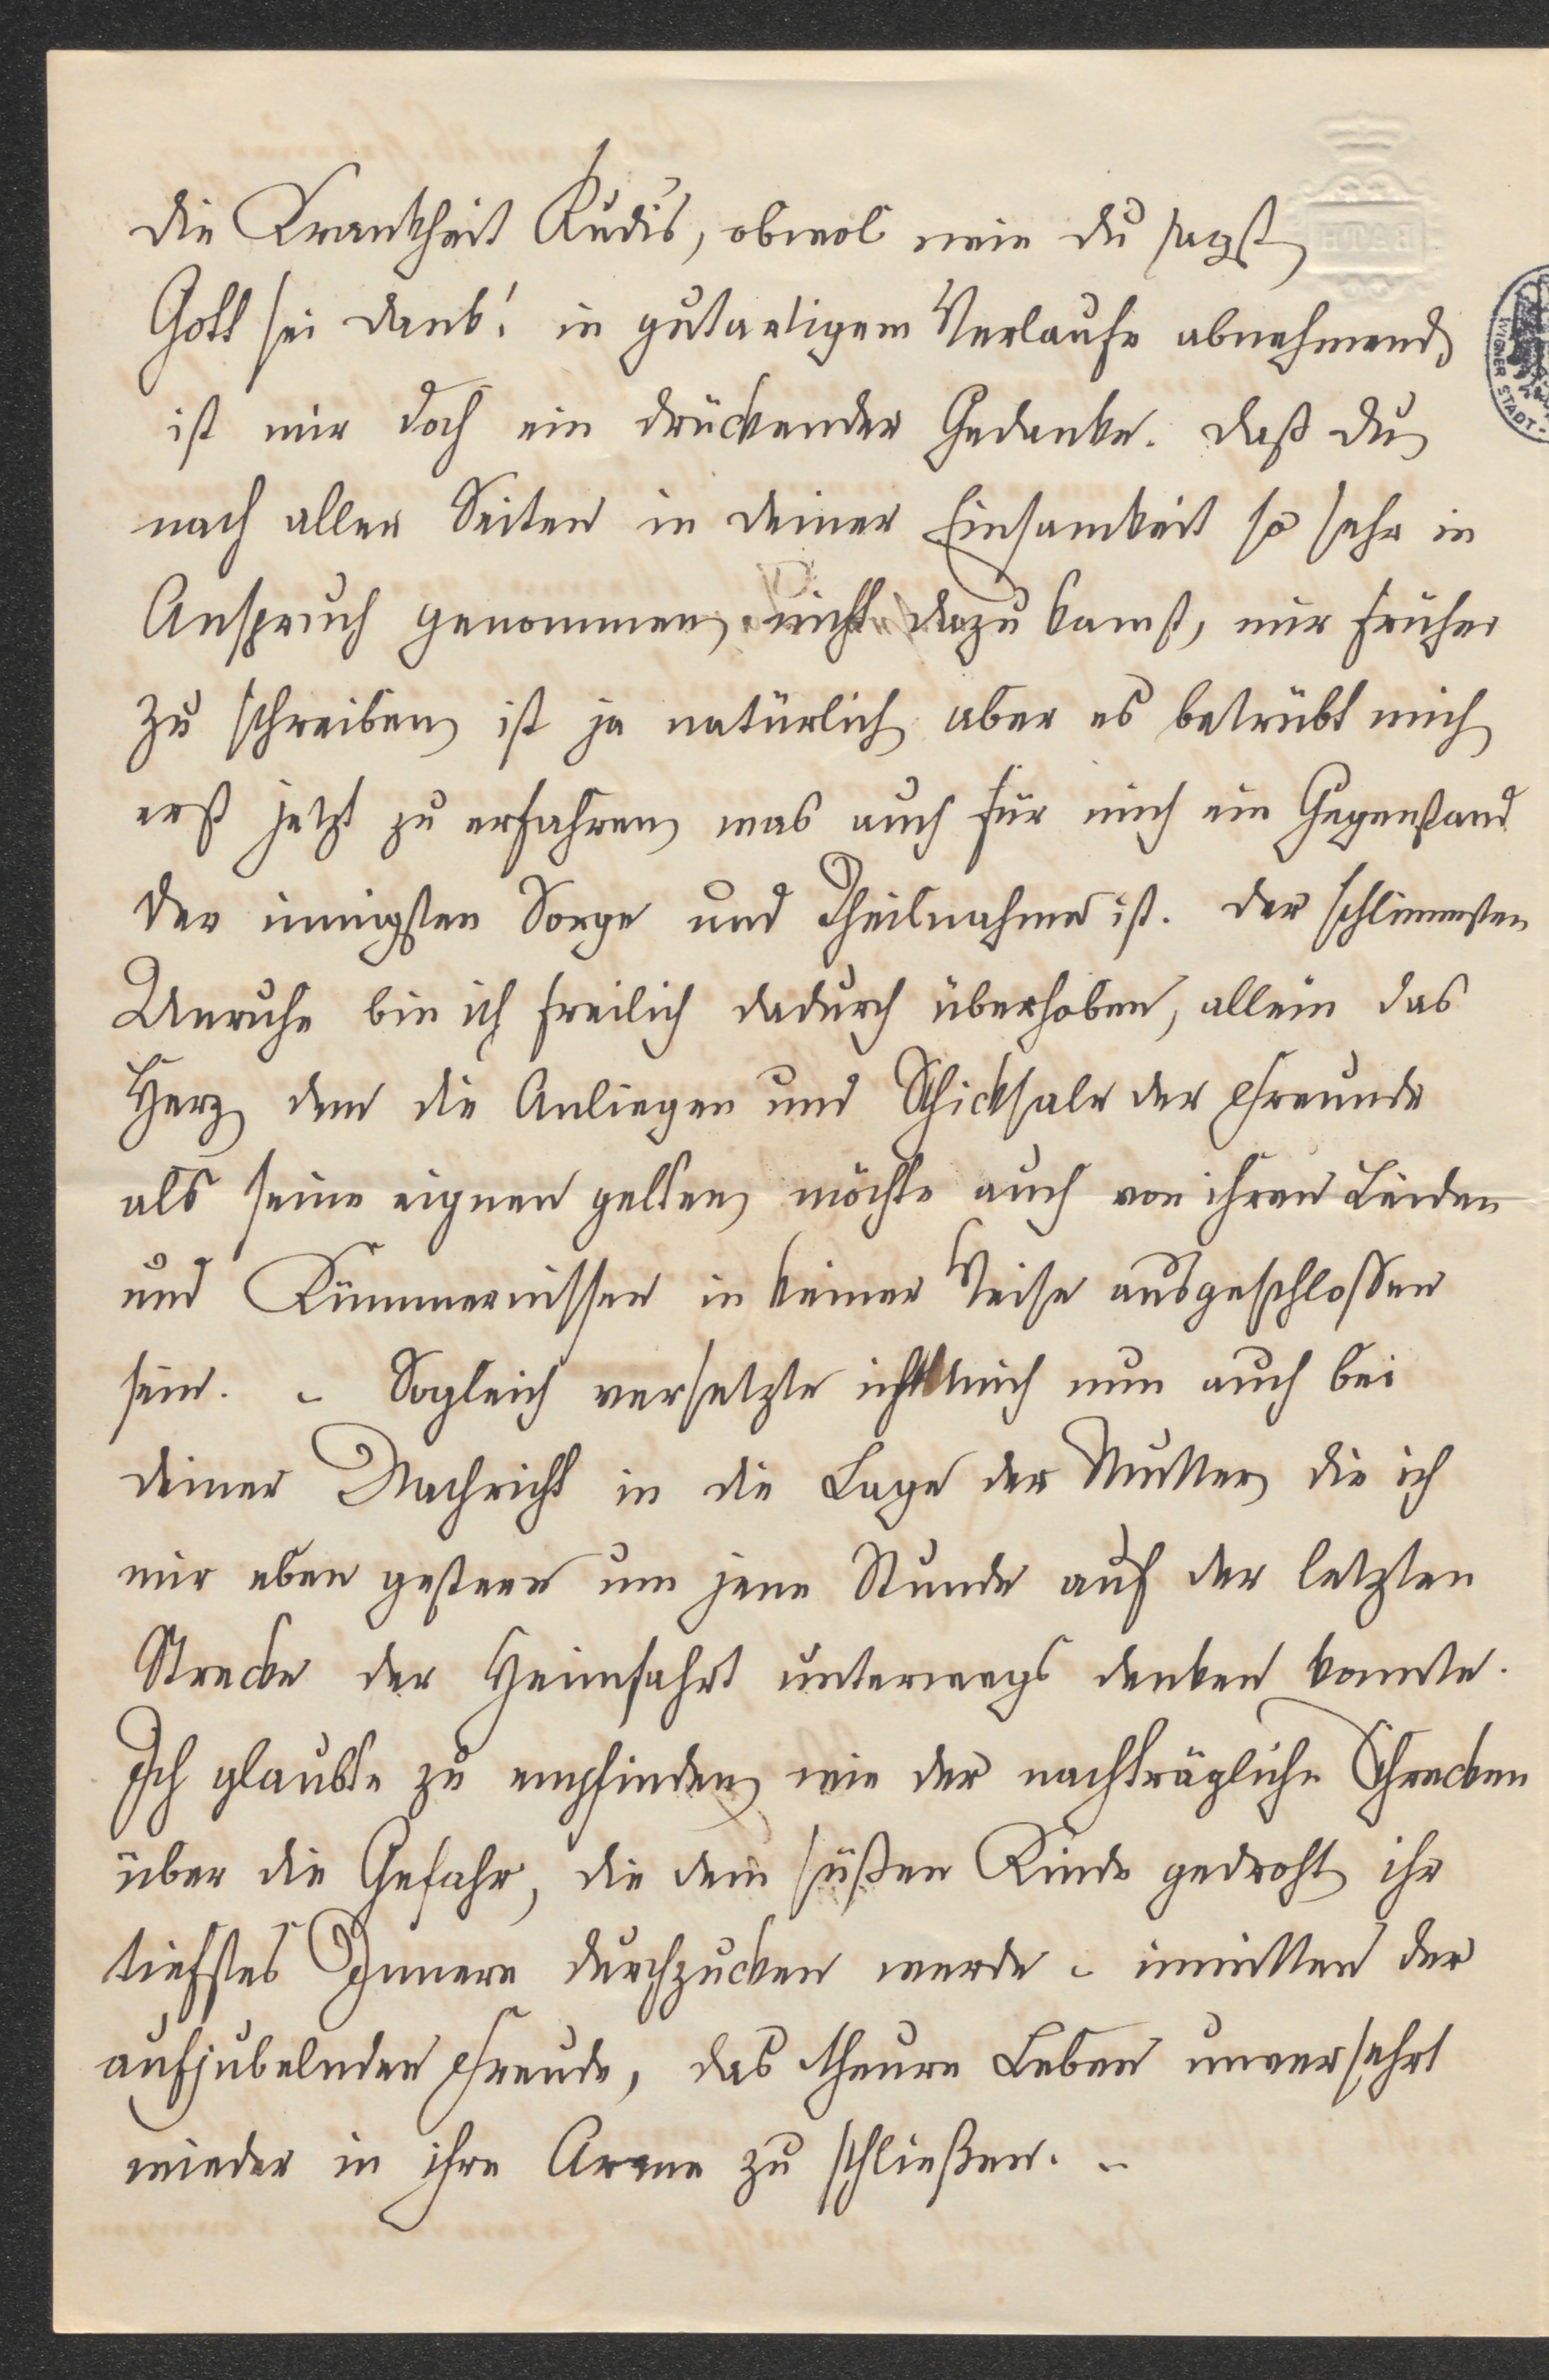 die Krankheit Rudis, obwol wie du sagst
Gott sei Dank! in gutartigem Verlaufe abnehmend,
ist mir doch ein drückender Gedanke. Daß du
nach allen Seiten in deiner Einsamkeit so sehr in
Anspruch genommen, nicht dazu kamst, mir früher
zu schreiben, ist ja natürlich, aber es betrübt mich
erst jetzt zu erfahren, was auch für mich ein Gegenstand
der innigsten Sorge und Theilnahme ist. Der schlimmsten
Unruhe bin ich freilich dadurch überhoben, allein das
Herz, dem die Anliegen und Schicksale der Freunde
als seine eignen gelten, möchte auch von ihren Leiden
und Kümmernissen in keiner Weise ausgeschlossen
sein. – Sogleich versetzte ich mich nun auch bei
deiner Nachricht in die Lage der Mutter, die ich
mir eben gestern um jene Stunde auf der letzten
Strecke der Heimfahrt unterwegs denken konnte.
Ich glaubte zu empfinden, wie der nachträgliche Schrecken
über die Gefahr, die dem süßen Kinde gedroht, ihr
tiefstes Innere durchzucken werde – inmitten der
aufjubelnden Freude, das theure Leben unversehrt
wieder in ihre Arme zu schließen. –
BATH
WIENER STADT-